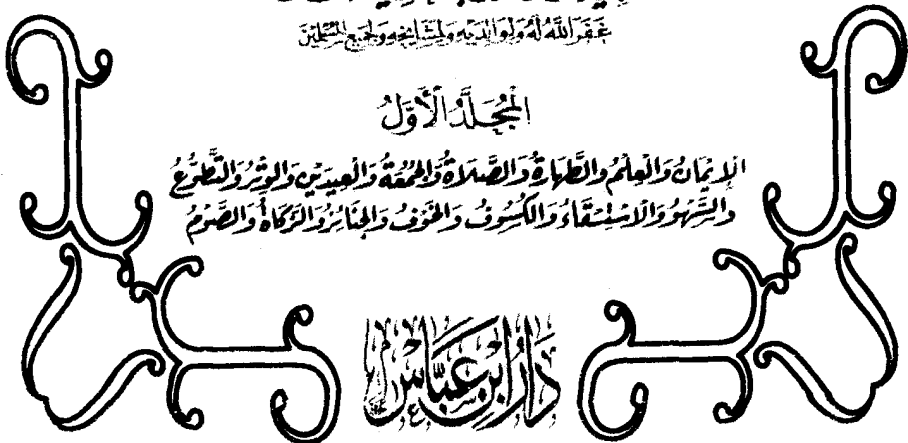 غَفَرَ اللَّهُ لَهُ وَلِوَالِدَيْهِ وَلِمَشَايِخِهِ وَلِجَمِيعِ الْمُسْلِمِينَ
الْمُجَلَّدُ الْأَوَّلُ
الْإِيمَانُ وَالْعِلْمُ وَالطَّهَارَةُ وَالصَّلَاةُ وَالْجُمُعَةُ وَالْعِيدَيْنِ وَالْوِتْرُ وَالتَّطَوُّعُ
وَالسَّهْوُ وَالْاسْتِسْقَاءُ وَالْكُسُوفُ وَالْخَوْفُ وَالْجَنَائِزُ وَالزَّكَاةُ وَالصَّوْمُ
دَارُ ابْنِ عَبَّاسٍ